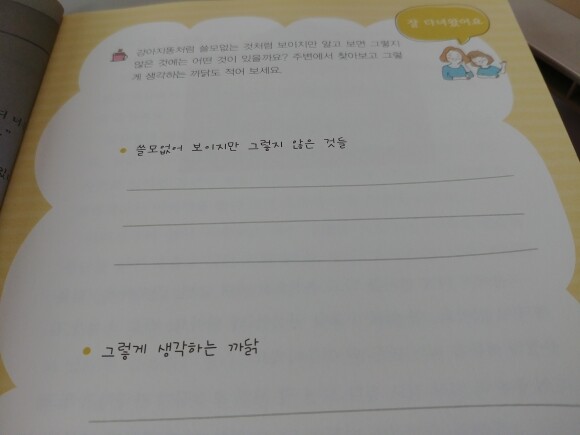 잘 다녀왔어요
강아지똥처럼 쓸모없는 것처럼 보이지만 알고 보면 그렇지
않은 것에는 어떤 것이 있을까요? 주변에서 찾아보고 그렇
게 생각하는 까닭도 적어 보세요.
쓸모없어 보이지만 그렇지 않은 것들
그렇게 생각하는 까닭